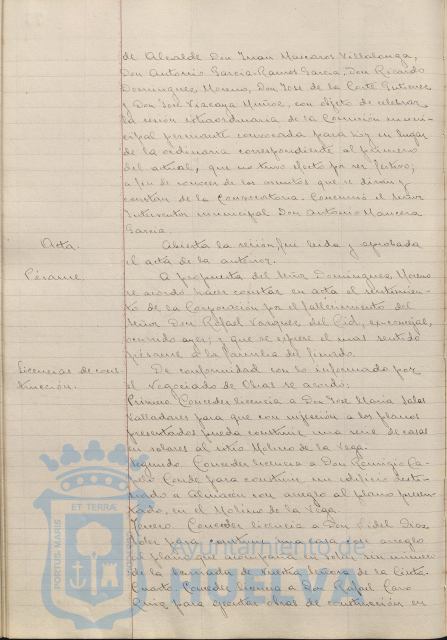 de Alcalde Don Juan Mascarós Villalonga,
Don Antonio García-Ramos García, Don Ricardo
Domínguez Moreno, Don José de la Corte Gutierrez
y Don José Vizcaya Muñoz, con objeto de celebrar
la sesión extraordinaria de la Comisión muni-
cipal permanente convocada para hoy en lugar
de la ordinaria correspondiente al primero
del actual, que no tuvo efecto por ser festivo;
a fin de conocer de los asuntos que se dirán y
constan de la Convocatoria. Concurrió el señor
Interventor municipal Don Antonio Mancera
García.
Acta. Abierta la sesión, fué leida y aprobada
el acta de la anterior.
Pésame. A propuesta del Señor Domínguez Moreno
se acordó hacer constar en acta el sentimien-
to de la Corporación por el fallecimiento del
señor Don Rafael Vazquez del Cid, ex-concejal,
ocurrido ayer; y que se exprese el mas sentido
pésame a la familia del finado.
Licencias de cons- De conformidad con lo informado por
trucción. el Negociado de Obras se acordó:
Primero. Conceder licencia a Don José Maria Salas
Valladares para que con sujeción a los planos
presentados pueda construir una serie de casas
en solares al sitio Molino de la Vega.
Segundo. Conceder licencia a Don Remigio Ca-
Conde para construir un edificio desti-
nado a almacén con arreglo al plano presen-
tado, en el Molino de la Vega.
Tercero. Conceder licencia a Don Fidel Diaz
para construir una casa con arreglo
al plano que
de la barriada de Nuestra Señora de la Cinta.
Cuarto. Conceder licencia a Don Rafael Caro
para ejecutar obras de construcción en
Ayuntamiento de
HUELVA
PORTUS MARIS
ET TERRAE